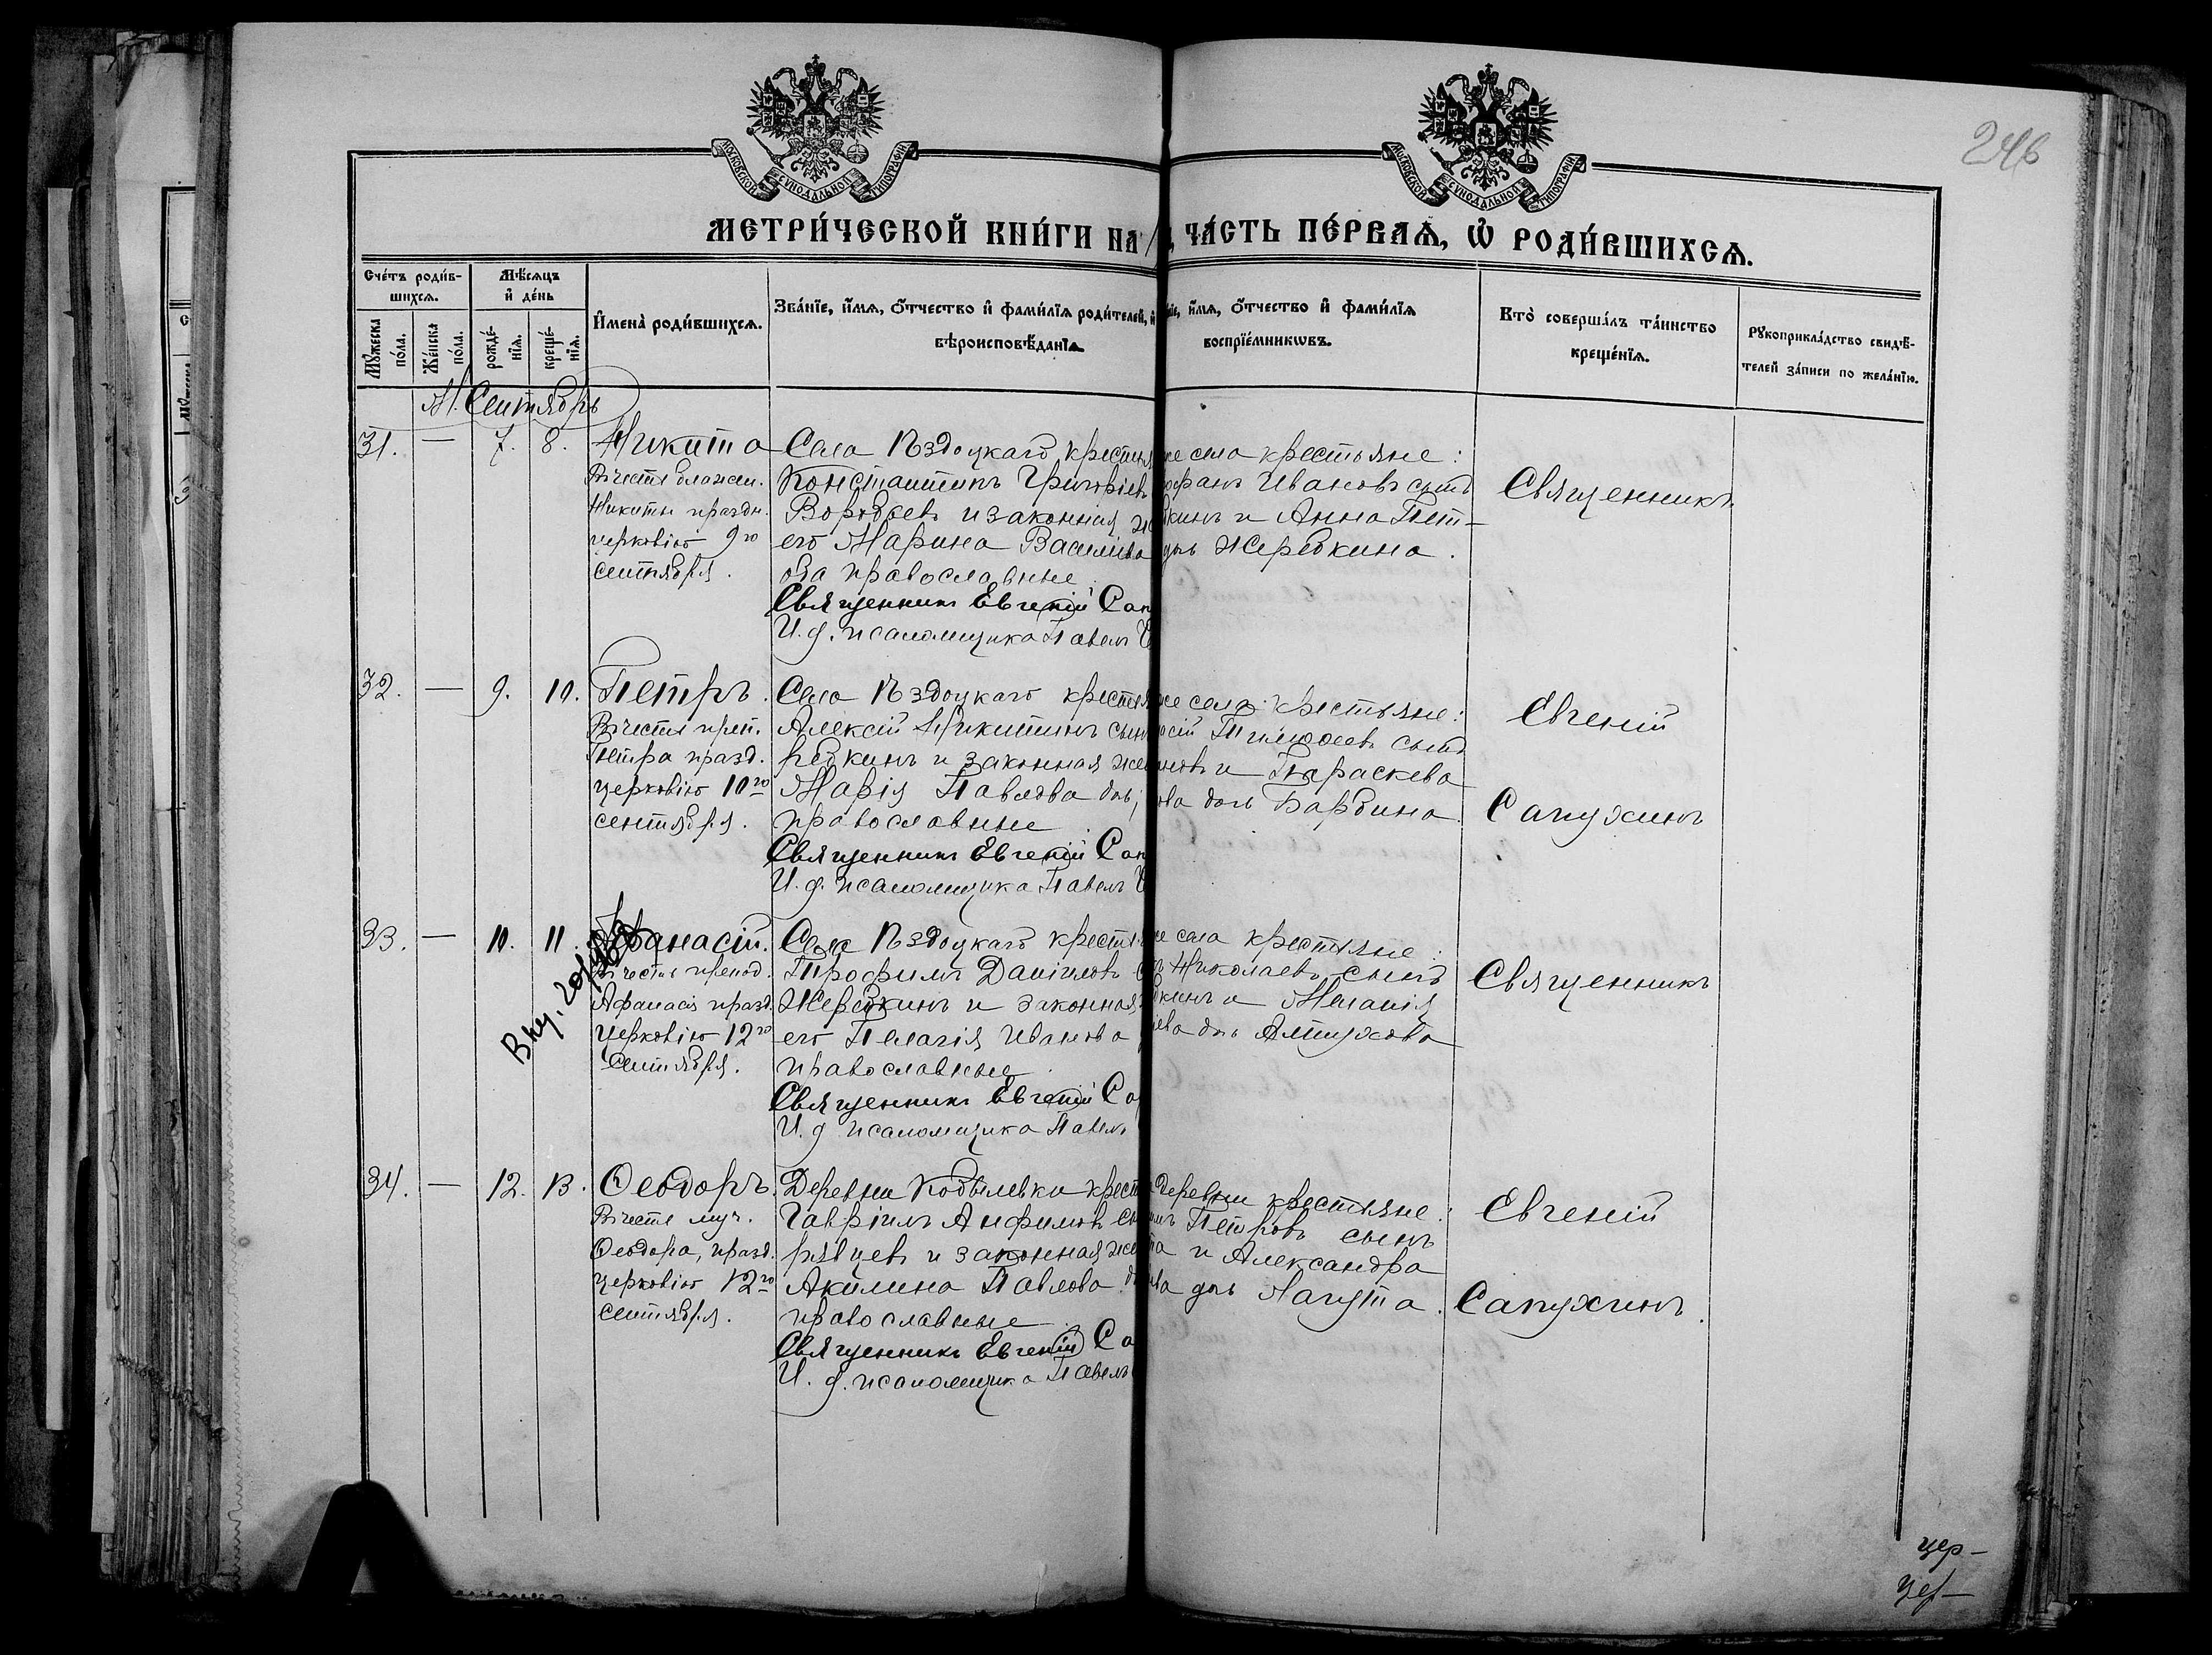 246
МОСКОВСКОЙ СУНОДАЛЬНОЙ ТИПОГРАФІИ
МОСКОВСКОЙ СУНОДАЛЬНОЙ ТИПОГРАФІИ
МЕТРИ́ЧЕСКОЙ КНИ́ГИ НА
ЧА́СТЬ ПЕ́РВАѦ, Ѡ҆ РОДИ́ВШИХСѦ.
Счéтъ роди́в-
шихсѧ.
Мѣ́сѧцъ
и҆ дéнь
Мꙋ́жеска
по́ла.
Жéнска
по́ла.
рождé-
нїѧ.
крещé-
нїѧ.
И҆мена̀ роди́вшихсѧ.
Зва́нїе, и҆́мѧ, ѻ҆́тчество и҆ фами́лїѧ роди́телей, и҆
вѣроисповѣ́данїѧ.
и҆́мѧ, ѻ҆́тчество и҆ фами́лїѧ
воспрїéмникѡвъ.
Кто̀ соверша́лъ та́инство
крещéнїѧ.
Рꙋкоприкла́дство свидѣ́-
телей за́писи по жела́нїю.
М. Сентябрь
31. — 7. 8. Никита
Въ честь блажен.
Никиты праздн.
церковію 9го
сентября.
Села Ѣздоцкаго крестья
Константинъ Григоріевъ
и законная
его Марина
оба православные
Священникъ Евгеній Сап
И. д. псаломщика Павелъ
же села крестьяне:
Ивановъ сынъ
и Анна Пет-
Жеребкина.
Священникъ
32. — 9. 10. Петръ.
Въ честь преп.
Петра празд.
церковію 10го
сентября.
Села Ѣздоцкаго крестья
Алексій Никитинъ сын
ребкинъ и законная же
Марія Павлова дчь,
православные
Священникъ Евгеній Сап
И. д. псаломщика Павелъ
же села крестьяне:
сынъ
и Параскева
ова дчь Бардина
Евгеній
Сапухинъ
33. — 10. 11. Афанасій.
Въ честь препод.
Афанасія празд.
церковію 12го
сентября.
Села Ѣздоцкаго крестья
Трофимъ Даніиловъ
Жеребкинъ и законная
его Пелагія Иванова
православные
Священникъ Евгеній Са
И. д. псаломщика Павелъ
же села крестьяне:
Николаевъ сынъ
бкинъ и Меланія
дчь
Священникъ
34. — 12. 13. Ѳеодоръ.
Въ честь муч.
Ѳеодора, празд.
церковію 12го
сентября.
Деревни Кобылевки крест
Гавріилъ Анфимовъ сы
и законная же
Акилина Павлова
православные
Священникъ Евгеній Са
И. д. псаломщика Павелъ
деревни крестьяне:
Петровъ сынъ
и Александра
дчь Лагута.
Евгеній
Сапухинъ.
цер-
цер-